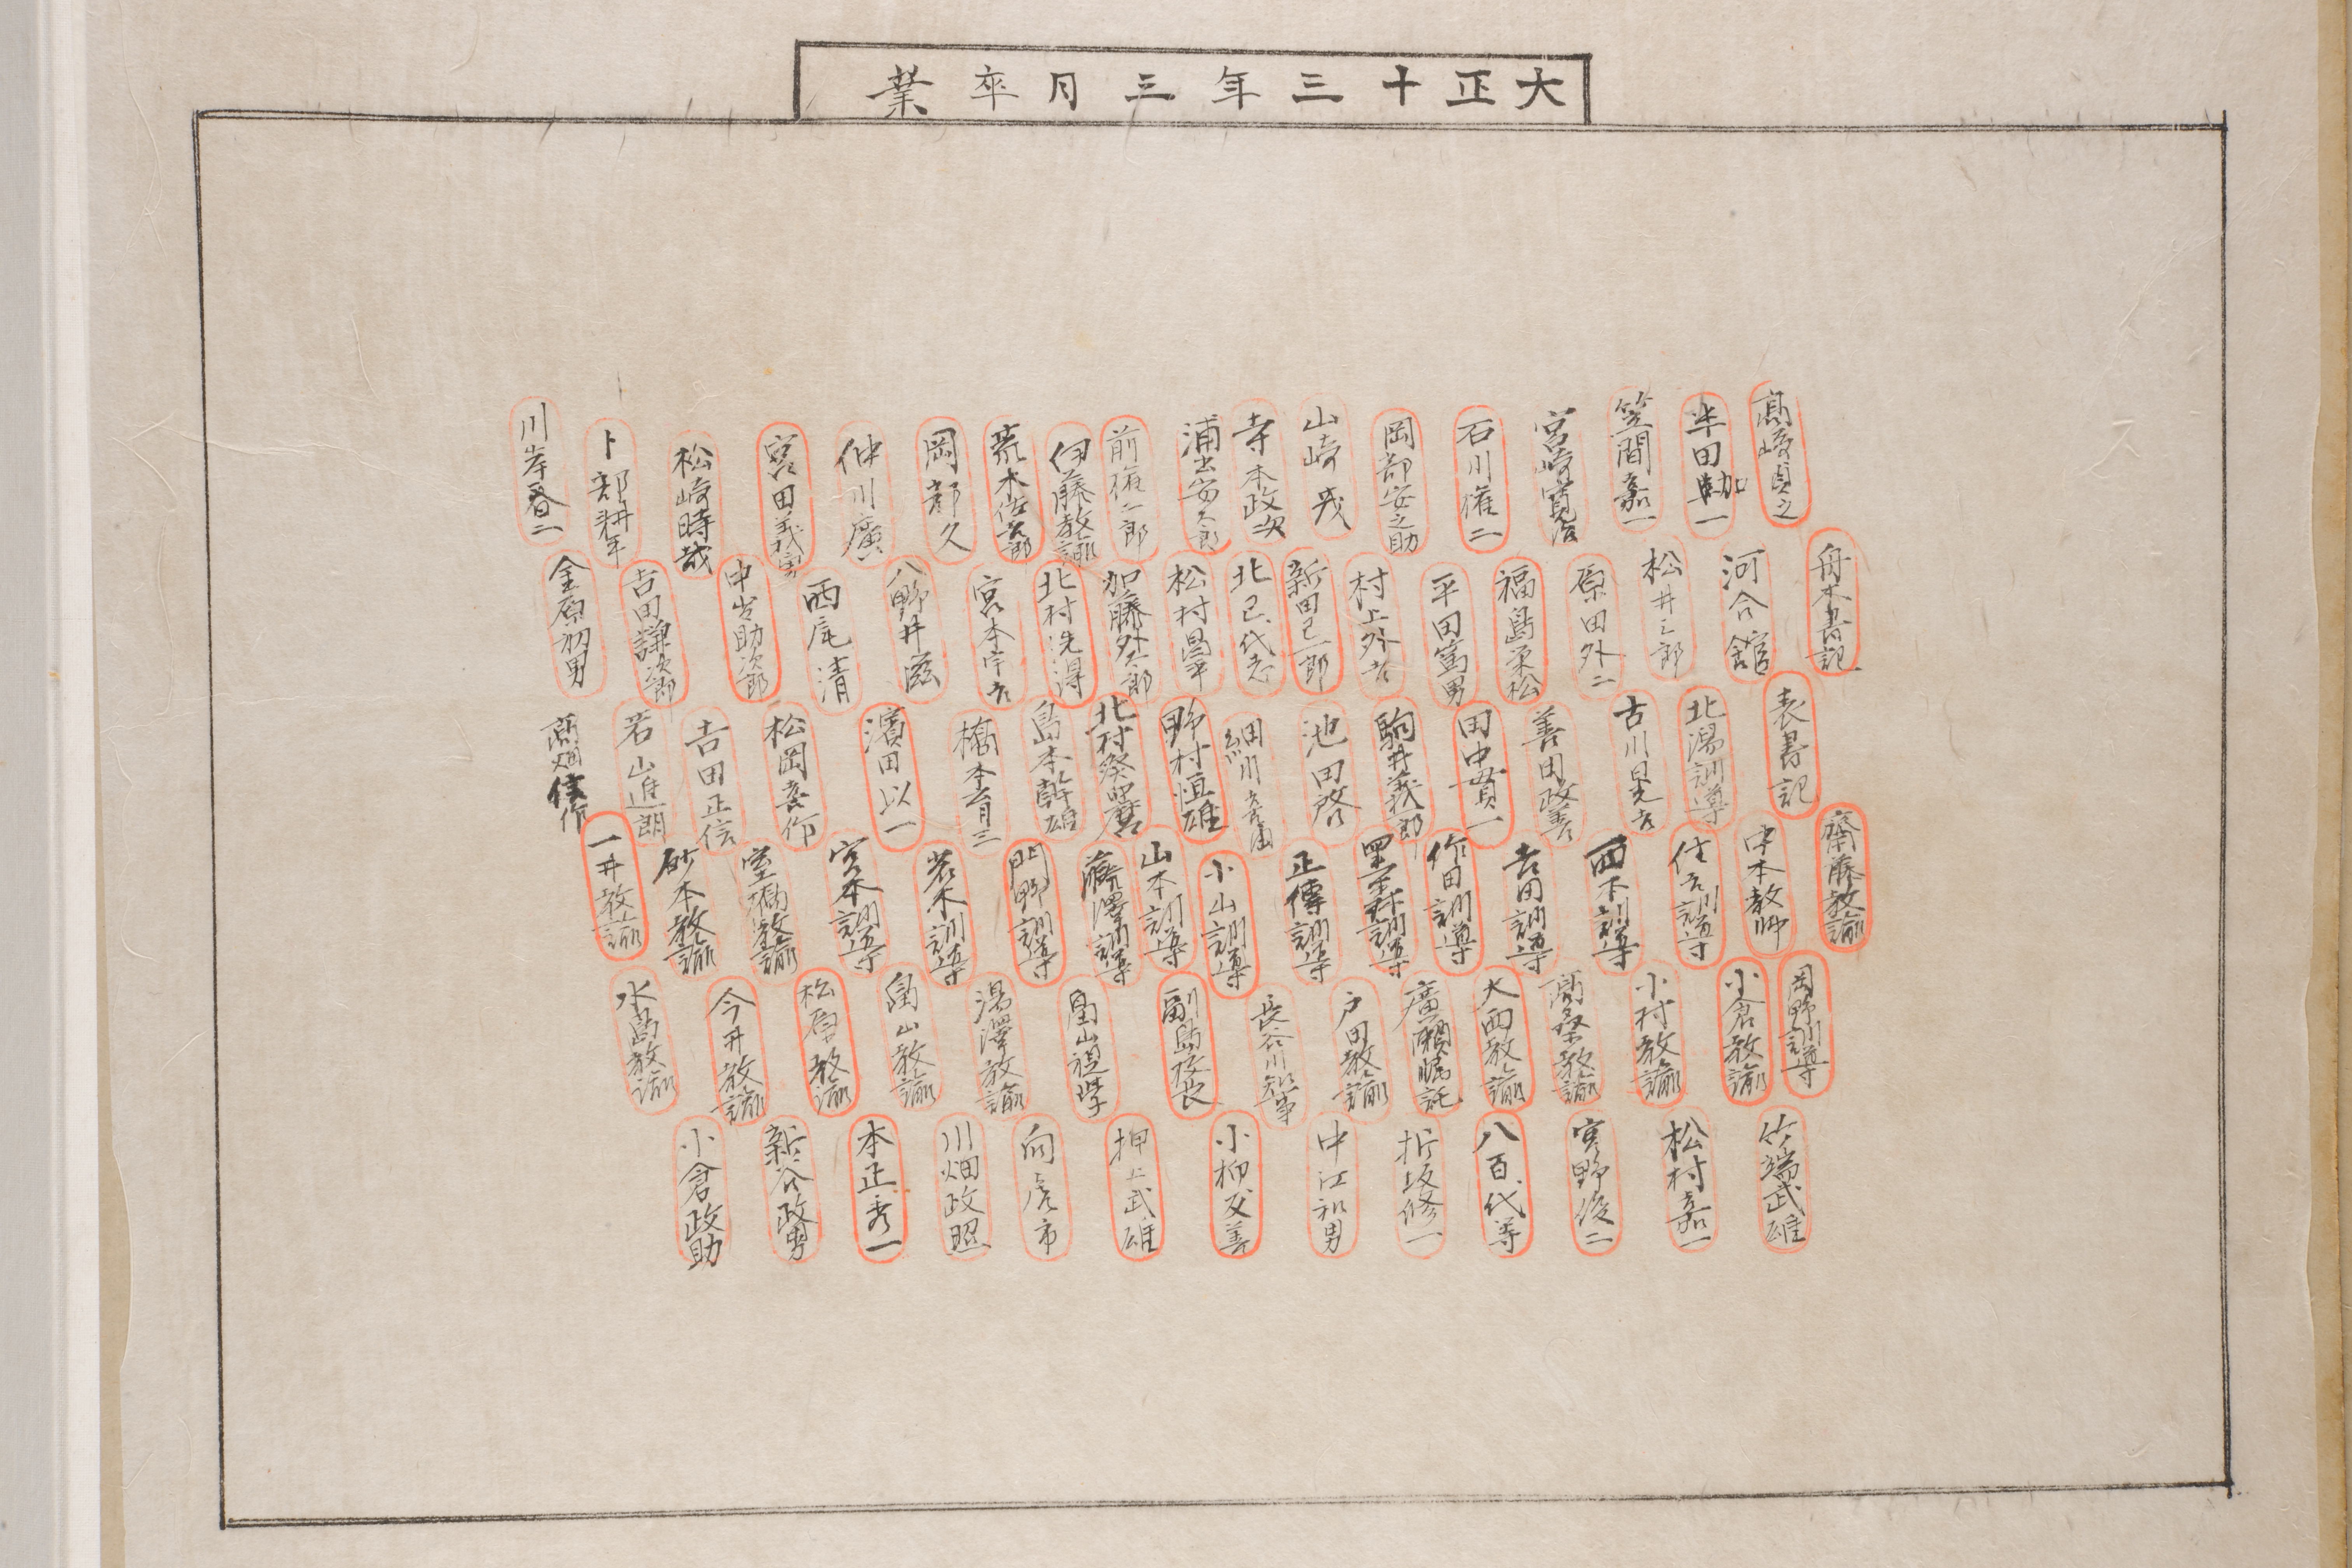 大正十三年三月卒業
高崎貞之
半田勘一
笠間嘉一
宮崎寛治
石川権二
岡部安之助
山崎茂
寺本政次
浦出安太郎
前権二郎
伊藤教諭
荒木佐吉郎
岡部久
仲川廣
宮田義男
松崎時哉
卜部耕平
川岸春二
舟木書記
河合舘
松井三郎
原田外二
福島柔松
平田富男
村上外吉
新田己一郎
北己代志
松村昌平
加藤外太郎
北村洗得
宮本宇吉
八野井滋
西尾清
中出助次郎
吉田謙次郎
金原初男
表書記
北潟訓導
古川晃吉
善田政善
田中貫一
駒井義一郎
池田啓
細川吉浦
野村恒雄
北村癸四麿
島本幹雄
橋本育三
濱田以一
松岡喜作
吉田正信
若山進朗
高畑信作
齋藤教諭
中本教師
住吉訓導
西本訓導
吉田訓導
作田訓導
訓導
正傳訓導
小山訓導
山本訓導
藤澤訓導
門野訓導
若木訓導
宮本訓導
室橋教諭
砂本教諭
一井教諭
岡野訓導
小倉教諭
小村教諭
高桑教諭
大西教諭
廣瀬嘱託
戸田教諭
長谷川知事
副島校長
畠山視学
湯澤教諭
畠山教諭
松原教諭
今井教諭
水島教諭
竹端武雄
松村嘉一
寅野俊二
八百代等
折坂修一
中江和男
小柳友善
押上武雄
向虎市
川畑政照
本正秀一
新谷政男
小倉政助